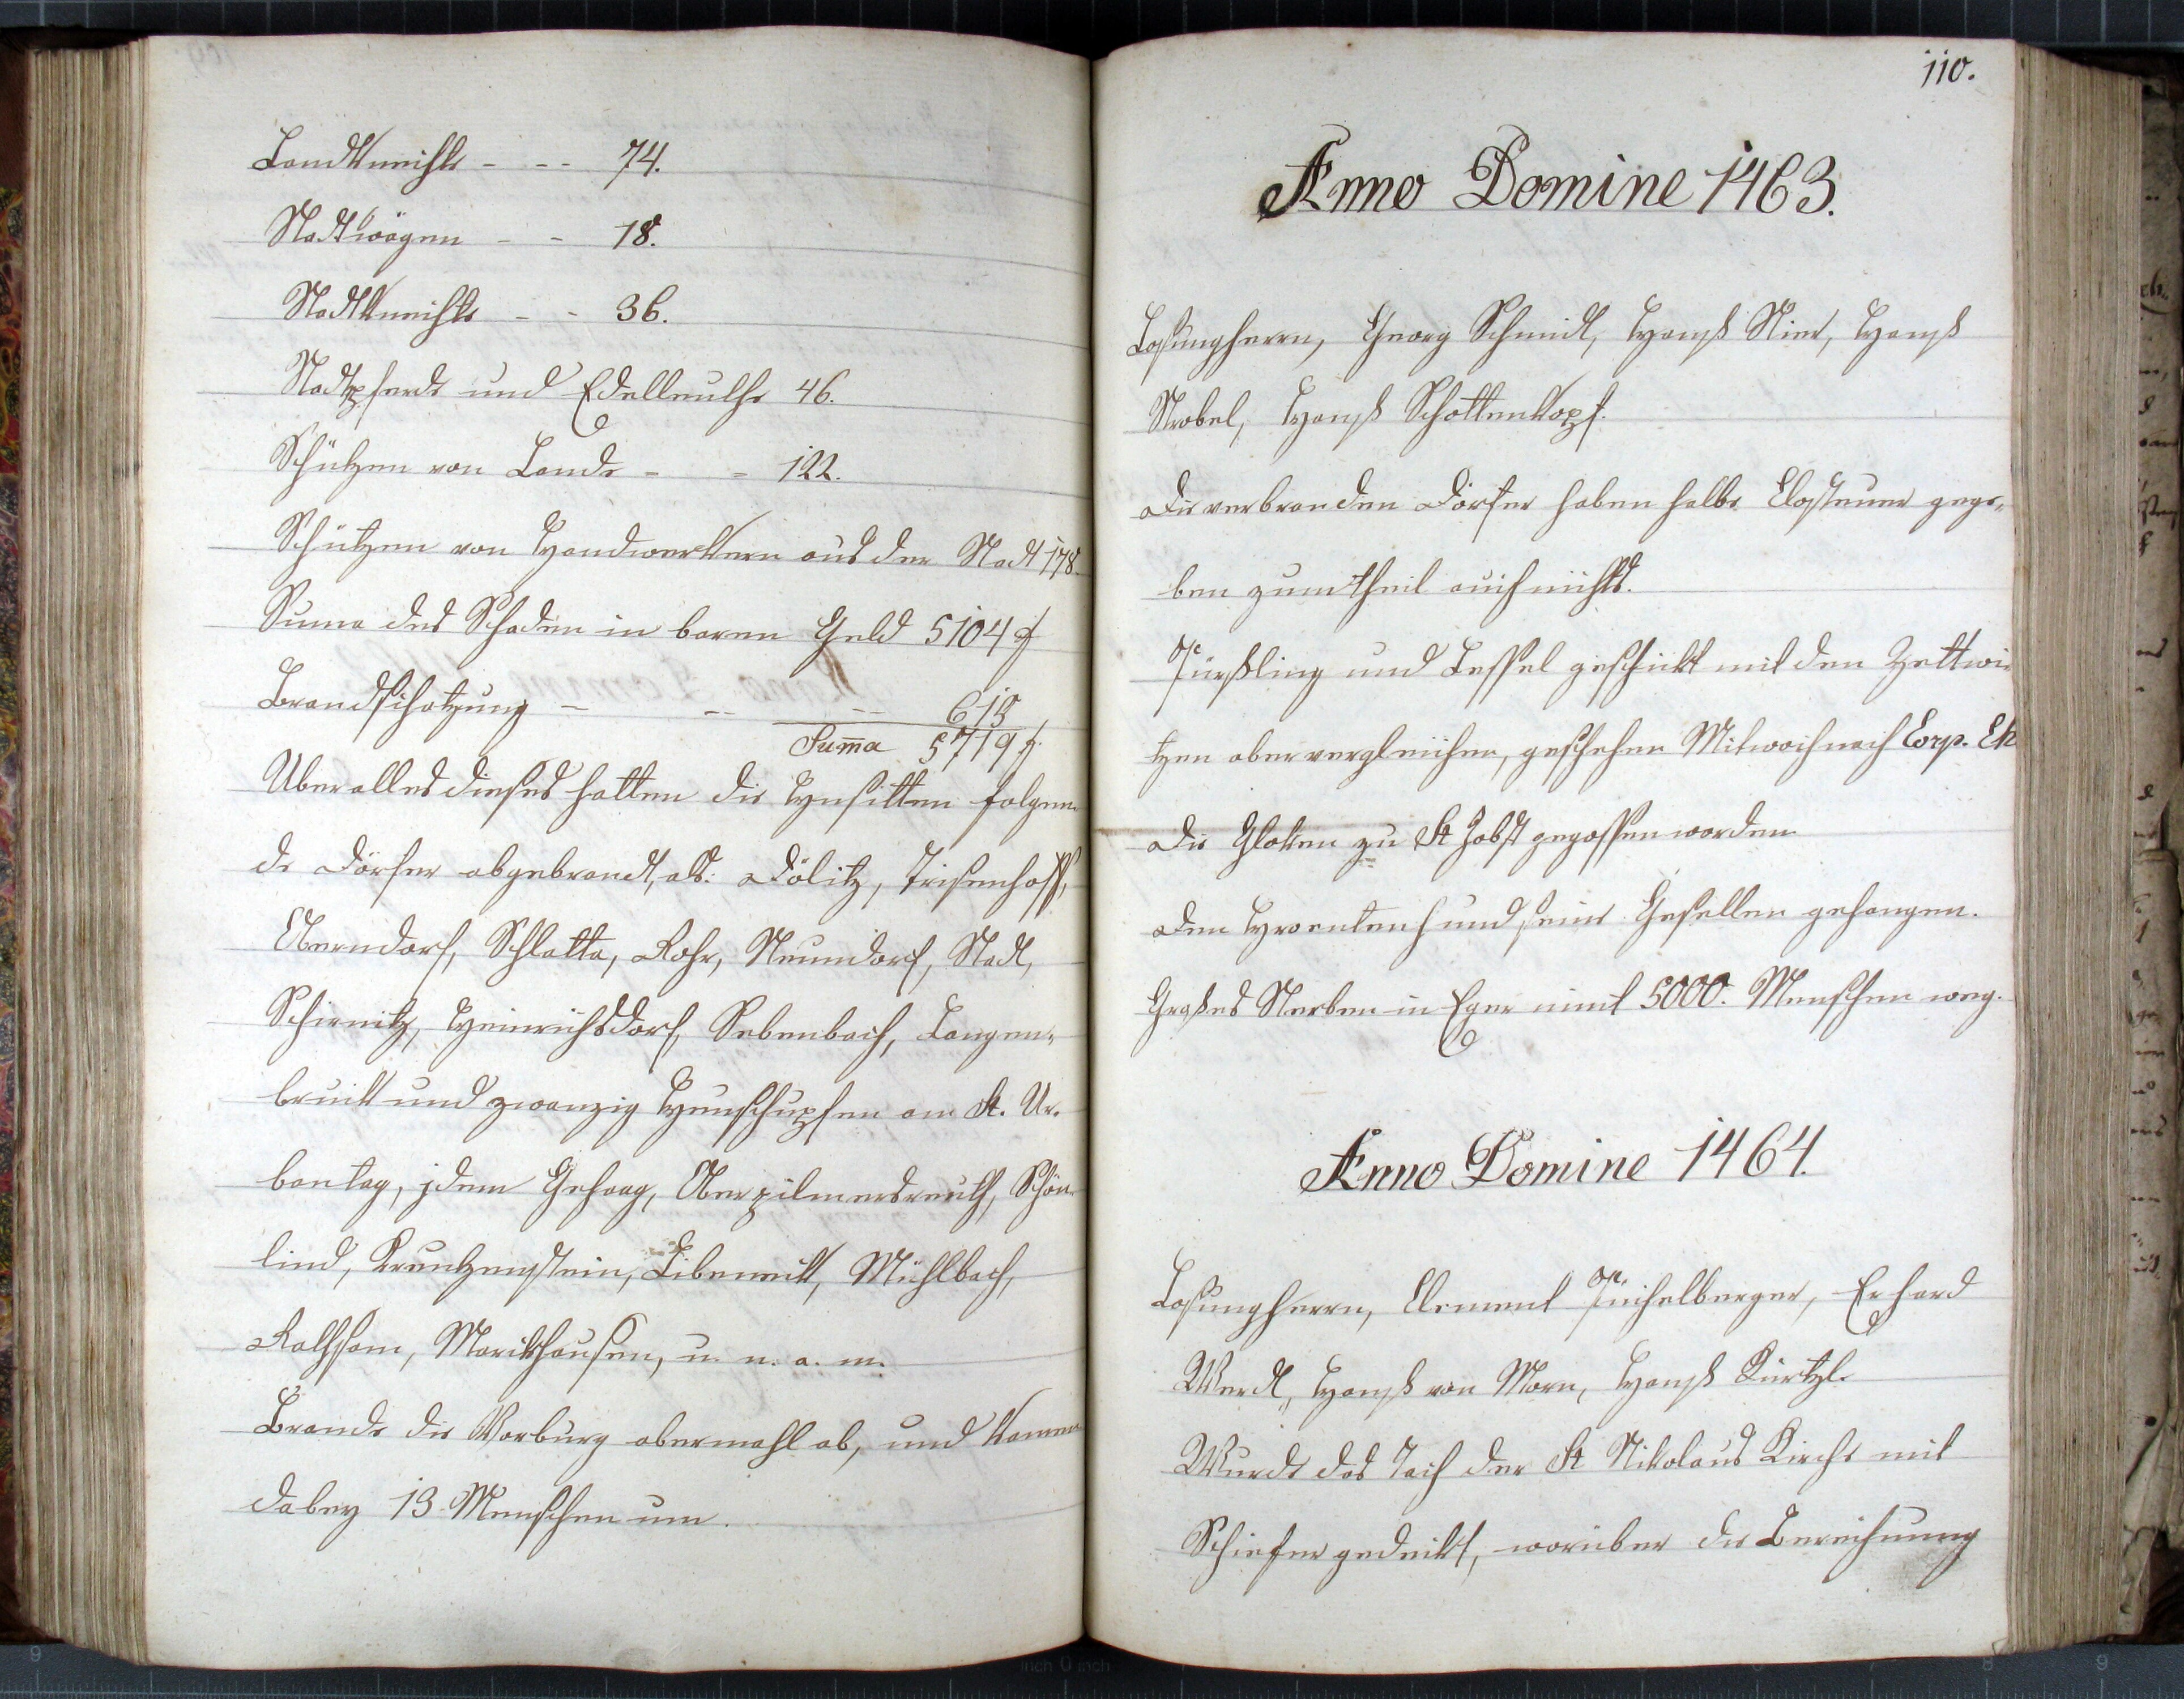 Landknechte - - - 74.
Stadtwägen - - 18.
Stadtknechte - - 36.
Stadtpferde und Edelleuthe 46.
Schützen von Lande - - 122.
Schützen von Handwerkern aus der Stadt 178.
Suma des Schaden in baren Geld 5104 f
Brandschatzung - -- -- 615
Suma 5719 f.
Uber alles dieses hatten die Hussitten folgen-
de Dörfer abgebrandt, als: Dölitz, Trisenhoff,
Oberndorf, Schlatta, Rohr, Neundorf, Stadl,
Schirnitz, Heinrichsdorf, Sebenbach, Langen-
bruck und zwanzig Heuschupfen am St. Ur-
ban tag, jdem Gehaag, Oberpilmersreuth, Schön-
lind, Kreutzenstein, Liebeneck, Mühlbach,
Rathsam, Markhausen, u. n. a. m.
Brande die Vorburg abermahl ab, und kamen
dabey 13 Menschen um.
110.
Anno Domine 1463.
Losungherrn, Georg Schmidl, Hanß Nier, Hanß
Strobel, Hanß Schottenkopf.
Die verbranden Dörfer haben halbe Closteuer gege-
ben zum theil auch nichts.
Türßling und Lessel geschickt mit den Zettwi-
tzen aber vergleichen, geschehen Mitwoch nach Corp. Ch
Die Gloken zu St Jobst gegossen worden
Den und seine Gesellen gefangen.
Großes Sterben in Eger nimt 5000. Menschen weg.
Anno Domine 1464.
Losungherrn, Clement Püchelberger, Erhard
Werdl, Hanß von Morn, Hanß Kürtzl.
Wurde das Tach der St Nikolaus Kirche mit
Schiefer gedeckt, worüber die Berechnung